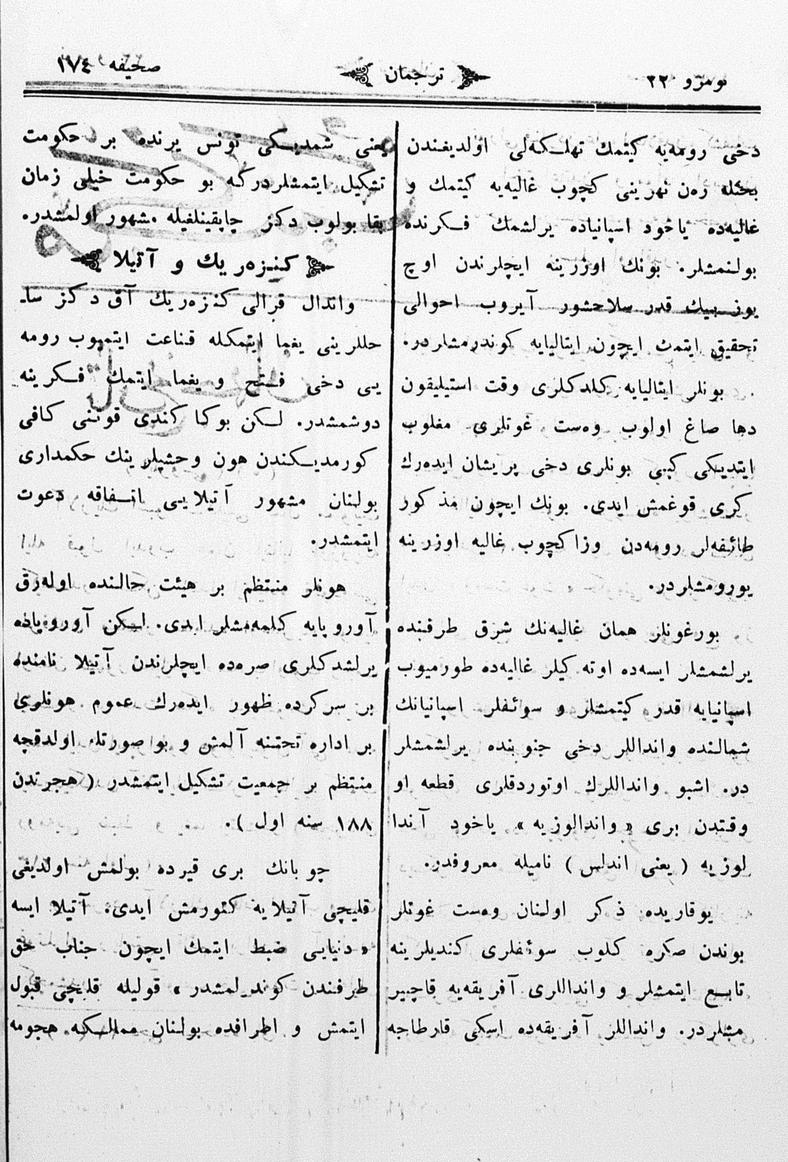 نومرو ٢٢
ترجمان
صحیفه ١٧٤
دخی رومه‌یه کیتمك تهلـكه‌لی اولدیغندن
بحثله ره‌ن نهرینی کچوب غالیه‌یه کیتمك و
غالیه‌ده یاخود اسپانیاده یرلشمك فـكرنده
بولنمشلر. بونك اوزرینه ایچلرندن اوچ
یوز بیك قدر سلاحشور آیروب احوالی
تحقیق ایتمك ایچون ایتالیایه کوندرمشلردر.
بونلر ایتالیایه کلدکلری وقت استیلیقون
دها صاغ اولوب وه‌ست غوتلری مغلوب
ایتدیكی کبی بونلری دخی پریشان ایده‌رك
کری قوغمش ایدی. بونك ایچون مذکور
طائفه‌لر رومه‌دن وزاکچوب غالیه اوزرینه
یورومشلردر.
بورغونلر همان غالیه‌نك شرق طرفنده
یرلشمشلر ایسه‌ده اوته‌کیلر غالیه‌ده طورمیوب
اسپانیایه قدر کیتمشلر و سوئفلر اسپانیانك
شمالنده وانداللر دخی جنوبنده یرلشمشلر
در. اشبو واندالـلرك اوتوردقلری قطعه او
وقتدن بری « واندالوزیه » یاخود آندا
لوزیه ( یعنی اندلس ) نامیله معروفدر.
یوقاریده ذکر اولنان وه‌ست غوتلر
بوندن صکره کلوب سوئفلری کندیلرینه
تابـع ایتمشلر و وانداللری آفریقه‌یه قاچیر
مشلردر. وانداللر آفریقه‌ده اسکی قارطاجه
یعنی شمدیـكی تونس یرنده بر حکومت
تشکیل ایتمشلردرکه بو حکومت خیلی زمان
بقا بولوب دکز چاپقینلغیله مشهور اولمشدر.
کنزه‌ریك و آتیلا
واندال قرالی کنزه‌ریك آق دکز سا
حللرینی یغما ایتمکله قناعت ایتمیوب رومه
یی دخی فـتح و یغما ایتمك فـكرینه
دوشمشدر. لـکن بوکا کندی قوتنی کافی
کورمدیـكندن هون وحشیلرینك حکمداری
بولنان مشهور آتیلایی اتـفاقه دعوت
ایتمشدر.
هونلر منتظم بر هیئت حالـنده اوله‌رق
آوروپایه کلمه‌مشلر ایدی. لـكن آوروپاده
یرلشدکلری صره‌ده ایچلرندن آتیلا نامنده
بر سرکرده ظهور ایده‌رك عموم هونلری
بر اداره تحتـنه آلمش و بو صورتله اولدقچه
منتظم بر جمعیت تشکیل ایتمشدر ( هجرتدن
١٨٨ سنه اول ).
چوبانك بری قیرده بولمش اولدیغی
قلیچی آتیلایه کتورمش ایدی. آتیلا ایسه
« دنیایی ضبط ایتمك ایچون جناب حق
طرفندن کوندرلمشدر » قولیله قلیچی قبول
ایتمش و اطرافده بولنان ممالـكه هجومه